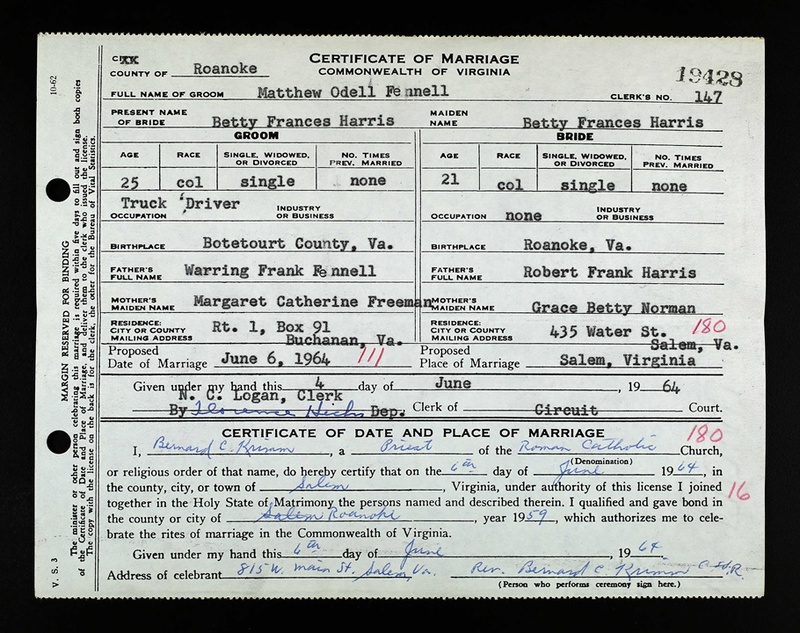 CERTIFICATE OF MARRIAGE
COMMONWEALTH OF VIRGINIA
19428
COUNTY OF Roanoke
FULL NAME OF GROOM Matthew Odell Fennell CLERK'S NO. 147
PRESENT NAME OF BRIDE Betty Frances Harris MAIDEN NAME Betty Frances Harris
GROOM BRIDE
AGE RACE SINGLE, WIDOWED, OR DIVORCED NO. TIMES PREV. MARRIED AGE RACE SINGLE, WIDOWED, OR DIVORCED NO. TIMES PREV. MARRIED
25 col single none 21 col single none
OCCUPATION Truck Driver INDUSTRY OR BUSINESS OCCUPATION none INDUSTRY OR BUSINESS
BIRTHPLACE Botetourt County, Va. BIRTHPLACE Roanoke, Va.
FATHER'S FULL NAME Warring Frank Fennell FATHER'S FULL NAME Robert Frank Harris
MOTHER'S MAIDEN NAME Margaret Catherine Freeman MOTHER'S MAIDEN NAME Grace Betty Norman
RESIDENCE: CITY OR COUNTY MAILING ADDRESS Rt. 1, Box 91 Buchanan, Va. RESIDENCE: CITY OR COUNTY MAILING ADDRESS 435 Water St. Salem, Va. 180
Proposed Date of Marriage June 6, 1964 111 Proposed Place of Marriage Salem, Virginia
Given under my hand this 4 day of June, 1964
N. C. Logan, Clerk
By Florence Hicks Dep. Clerk of Circuit Court.
CERTIFICATE OF DATE AND PLACE OF MARRIAGE 180
I, Bernard C. Krimm, a Priest of the Roman Catholic Church,
(Denomination)
or religious order of that name, do hereby certify that on the 6th day of June 1964, in
the county, city, or town of Salem, Virginia, under authority of this license I joined
together in the Holy State of Matrimony the persons named and described therein. I qualified and gave bond in 16
the county or city of Salem Roanoke, year 1959, which authorizes me to cele-
brate the rites of marriage in the Commonwealth of Virginia.
Given under my hand this 6th day of June, 1964.
Address of celebrant 815 W. Main St. Salem, Va. Rev. Bernard C. Krimm C.SS.R.
(Person who performs ceremony sign here.)
10-62
MARGIN RESERVED FOR BINDING
The minister or other person celebrating this marriage is required within five days to fill out and sign both copies
of the Certificate of Date and Place of Marriage, and deliver them to the clerk who issued the license.
The copy with the license on the back is for the clerk, the other for the Bureau of Vital Statistics.
V. S. 3